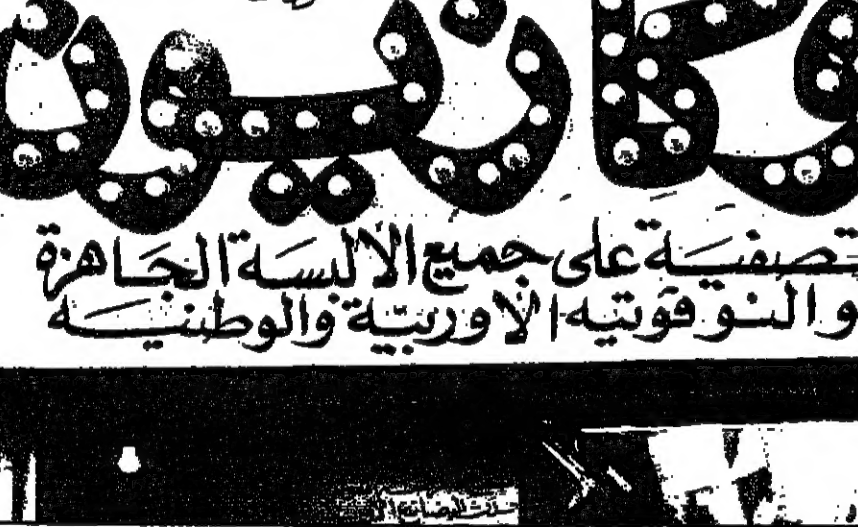 وكازيون
تصفية على جميع الالبسة الجاهزة
والنوفوتيه الاوربيّة والوطنيه